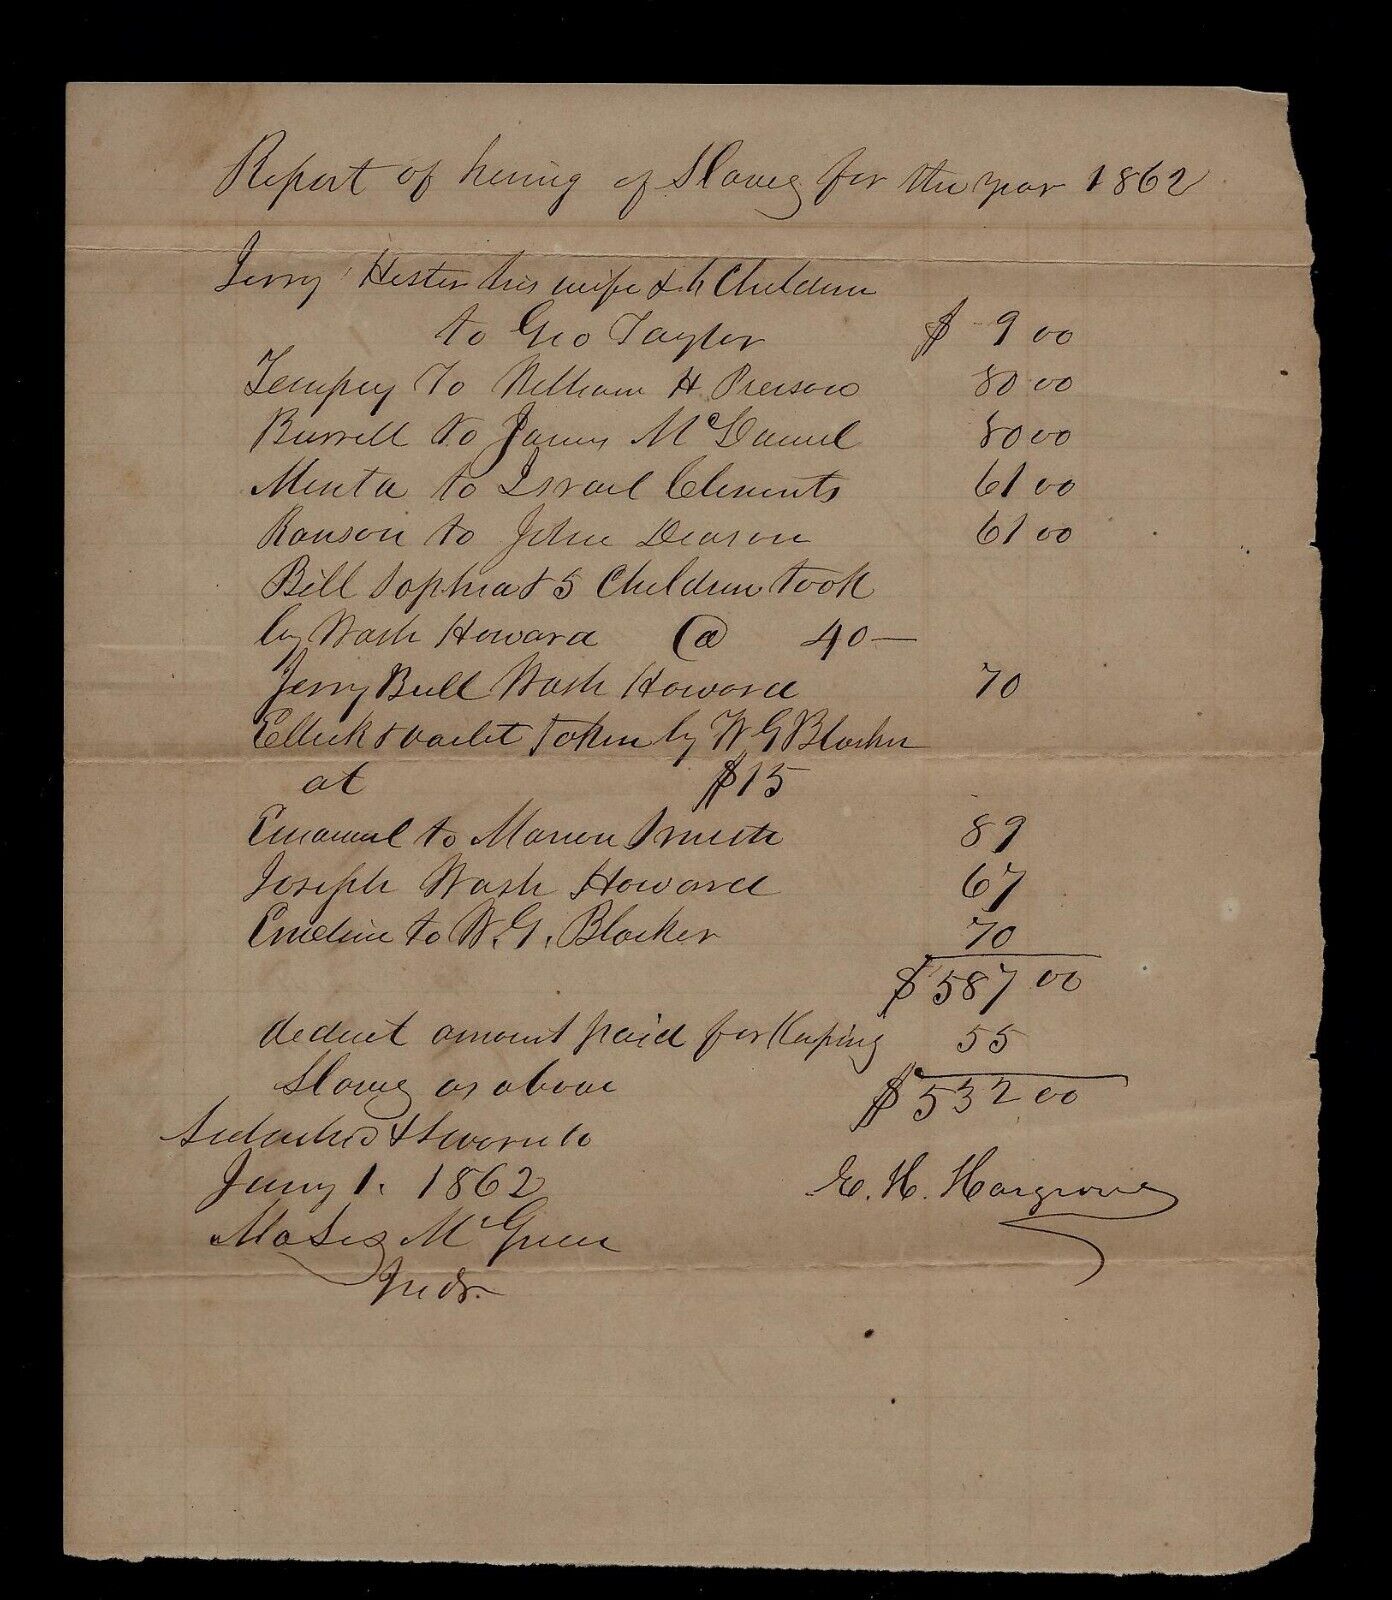 Report of hiring of Slaves for the year 1862
Jerry Hester his wife & 4 Children
to Geo Taylor $ 9 00
Tempey To William H. Pierson 80 00
Burrell to James McDaniel 80 00
Minta to Israel Clements 61 00
Ranson to John Deason 61 00
Bill Sophia & 5 Children took
by Wash Howard @ 40—
Jerry Bull Wash Howard 70
Elleck & taken by W G Blocker
at $15
Emanuel to Marion Smith 89
Joseph Wash Howard 67
Emeline to W. G. Blocker 70
$ 587 00
deduct amount paid for Keeping 55
Slaves as above $ 532 00
& Sworn to
Jany 1. 1862 E. H. Hargrove
Moses McGuin